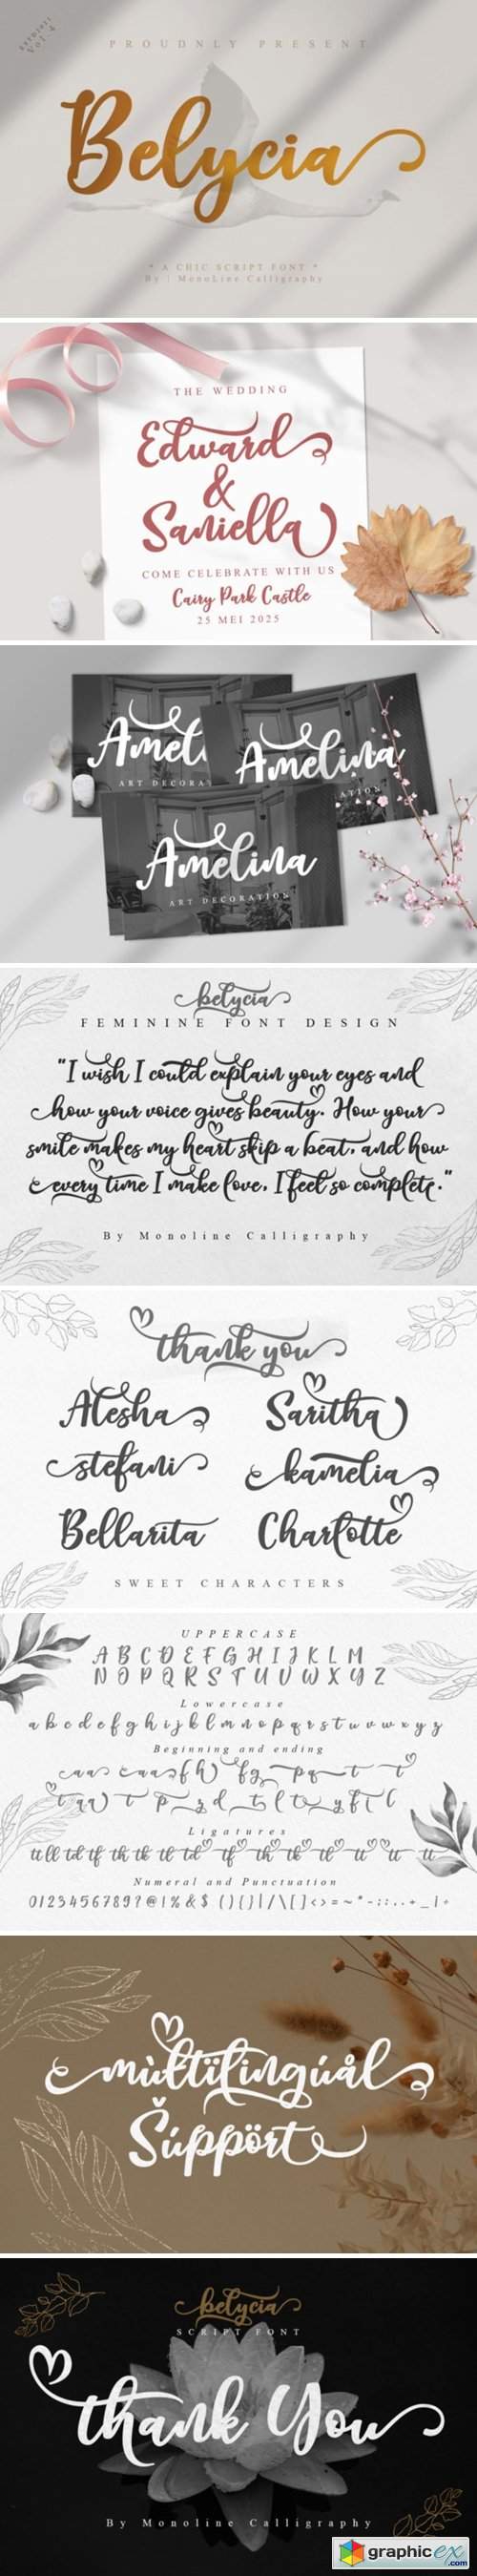 Vol.4
PROUDNLY PRESENT
Belycia
* A CHIC SCRIPT FONT *
By | MonoLine Calligraphy
THE WEDDING
Edward
&
Saniella
COME CELEBRATE WITH US
Cairy Park Castle
25 MEI 2025
Ameli
ART DECORAT
Amelina
ATION
Amelina
ART DECORATION
belycia
FEMININE FONT DESIGN
"I wish I could explain your eyes and
how your voice gives beauty. How your
smile makes my heart skip a beat, and how
every time I make love, I feel so complete."
By Monoline Calligraphy
thank you
Alesha Saritha
stefani kamelia
Bellarita Charlotte
SWEET CHARACTERS
UPPERCASE
A B C D E F G H I J K L M
N O P Q R S T U V W X Y Z
Lowercase
a b c d e f g h i j k l m n o p q r s t u v w x y z
Beginning and ending
Ligatures
tt ll td tf th tk tl td tf th tk tl tt tt tt
Numeral and Punctuation
0 1 2 3 4 5 6 7 8 9 ? @ ! % & $ ( ) { } | / \ [ ] < > = ~ * - : ; . , + _ | +
mùltïlingúål
Šúppört
belycia
SCRIPT FONT
thank You
By Monoline Calligraphy
graphicex
.com